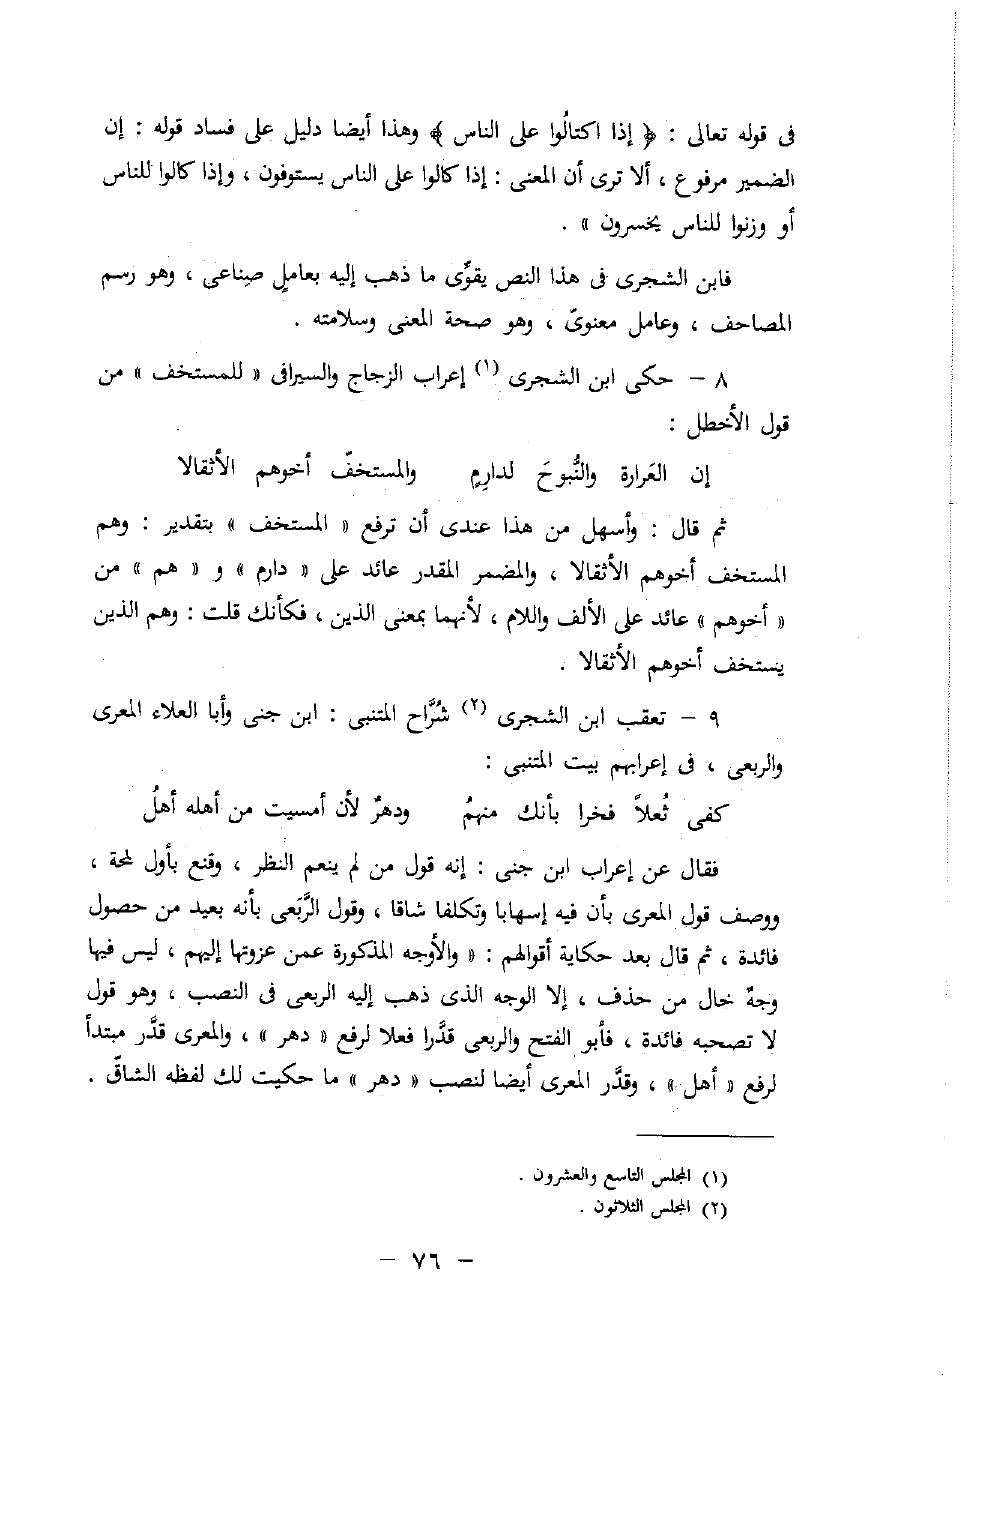 فى قوله تعالى : ﴿ إذا اكتالُوا على الناس ﴾ وهذا أيضا دليل على فساد قوله : إن
الضمير مرفوع ، ألا ترى أن المعنى : إذا كالوا على الناس يستوفون ، وإذا كالوا للناس
أو وزنوا للناس يخسرون » .
فابن الشجرى فى هذا النص يقوِّى ما ذهب إليه بعاملٍ صِناعى ، وهو رسم
المصاحف ، وعامل معنوىّ ، وهو صحة المعنى وسلامته .
٨ – حكى ابن الشجرى (١) إعراب الزجاج والسيرافى « للمستخف » من
قول الأخطل :
إن العَرارة والنُّبوحَ لدارِمٍ والمستخفّ أخوهم الأثقالا
ثم قال : وأسهل من هذا عندى أن ترفع « المستخف » بتقدير : وهم
المستخف أخوهم الأثقالا ، والمضمر المقدر عائد على « دارم » و « هم » من
« أخوهم » عائد على الألف واللام ، لأنهما بمعنى الذين ، فكأنك قلت : وهم الذين
يستخف أخوهم الأثقالا .
٩ – تعقب ابن الشجرى (٢) شُرَّاح المتنبى : ابن جنى وأبا العلاء المعرى
والربعى ، فى إعرابهم بيت المتنبى :
كفى ثُعلاً فخرا بأنك منهمُ ودهرٌ لأن أمسيت من أهله أهلُ
فقال عن إعراب ابن جنى : إنه قول من لم ينعم النظر ، وقنع بأول لمحة ،
ووصف قول المعرى بأن فيه إسهابا وتكلفا شاقا ، وقول الرَّبَعى بأنه بعيد من حصول
فائدة ، ثم قال بعد حكاية أقوالهم : « والأوجه المذكورة عمن عزوتها إليهم ، ليس فيها
وجهٌ خال من حذف ، إلا الوجه الذى ذهب إليه الربعى فى النصب ، وهو قول
لا تصحبه فائدة ، فأبو الفتح والربعى قدَّرا فعلا لرفع « دهر » ، والمعرى قدَّر مبتدأ
لرفع « أهل » ، وقدَّر المعرى أيضا لنصب « دهر » ما حكيت لك لفظه الشاقّ .
(١) المجلس التاسع والعشرون .
(٢) المجلس الثلاثون .
– ٧٦ –